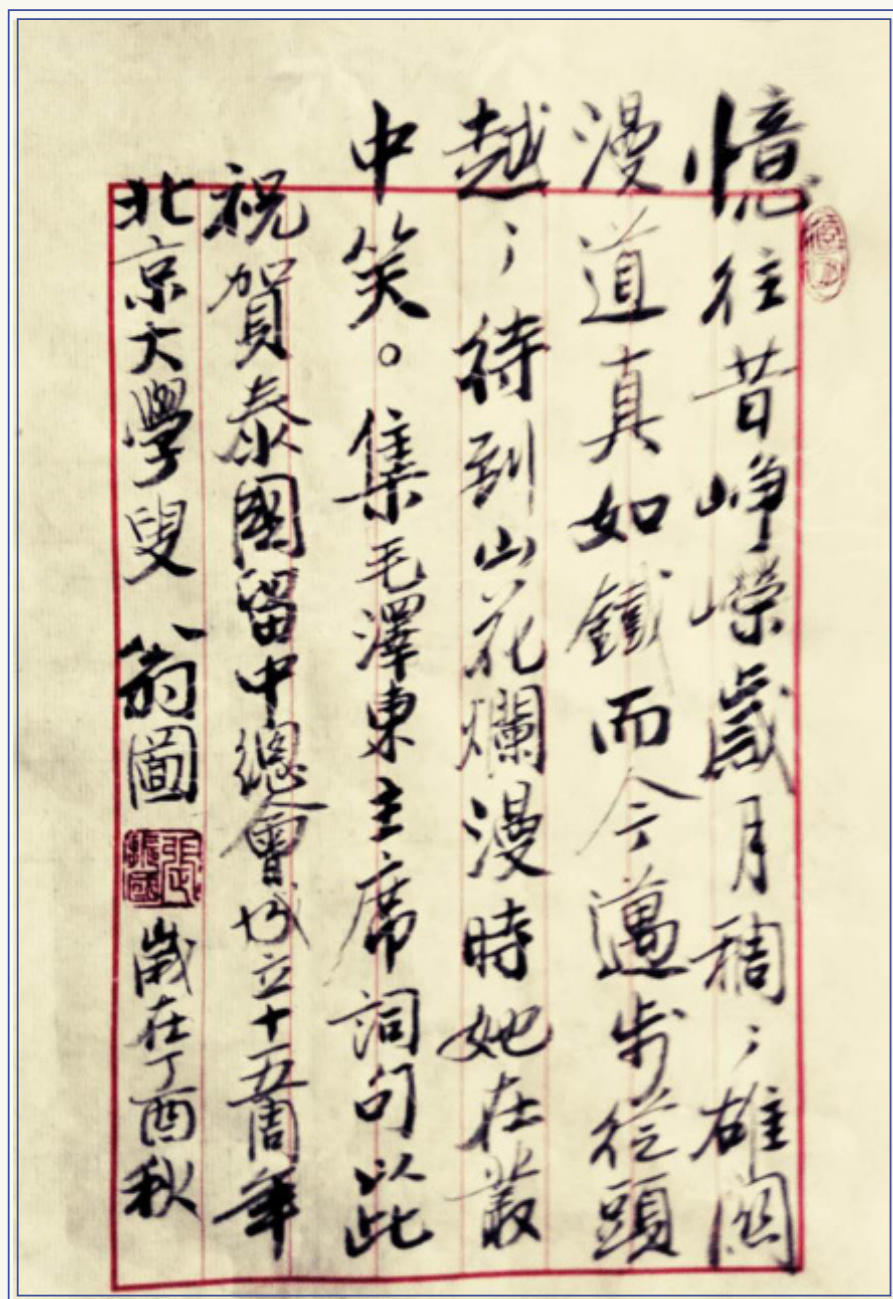 憶往昔崢嶸歲月稠；雄關
漫道真如鐵而今邁步從頭
越；待到山花爛漫時她在叢
中笑。集毛澤東主席詞句以此
祝賀泰國留中總會成立十五周年
北京大學叟 翁圖 歲在丁酉秋